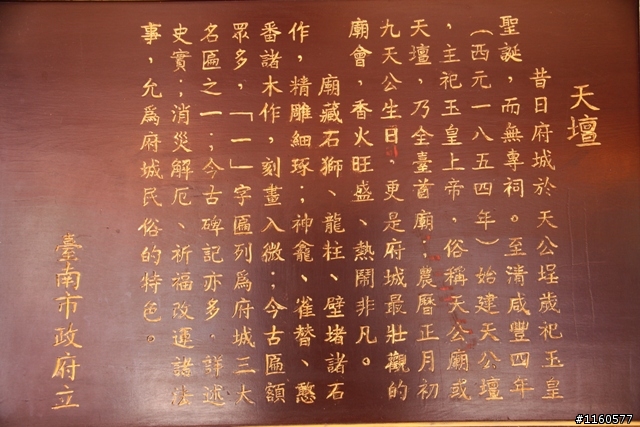 天壇
昔日府城於天公埕歲祀玉皇
聖誕，而無專祠。至清咸豐四年
（西元一八五四年）始建天公壇
，主祀玉皇上帝，俗稱天公廟或
天壇，乃全臺首廟；農曆正月初
九天公生日，更是府城最壯觀的
廟會，香火旺盛、熱鬧非凡。
廟藏石獅、龍柱、壁堵諸石
作，精雕細琢；神龕、雀替、憨
番諸木作，刻畫入微；今古匾額
眾多，「一」字匾列為府城三大
名匾之一；今古碑記亦多，詳述
史實；消災解厄、祈福改運諸法
事，允為府城民俗的特色。
臺南市政府立
#1160577